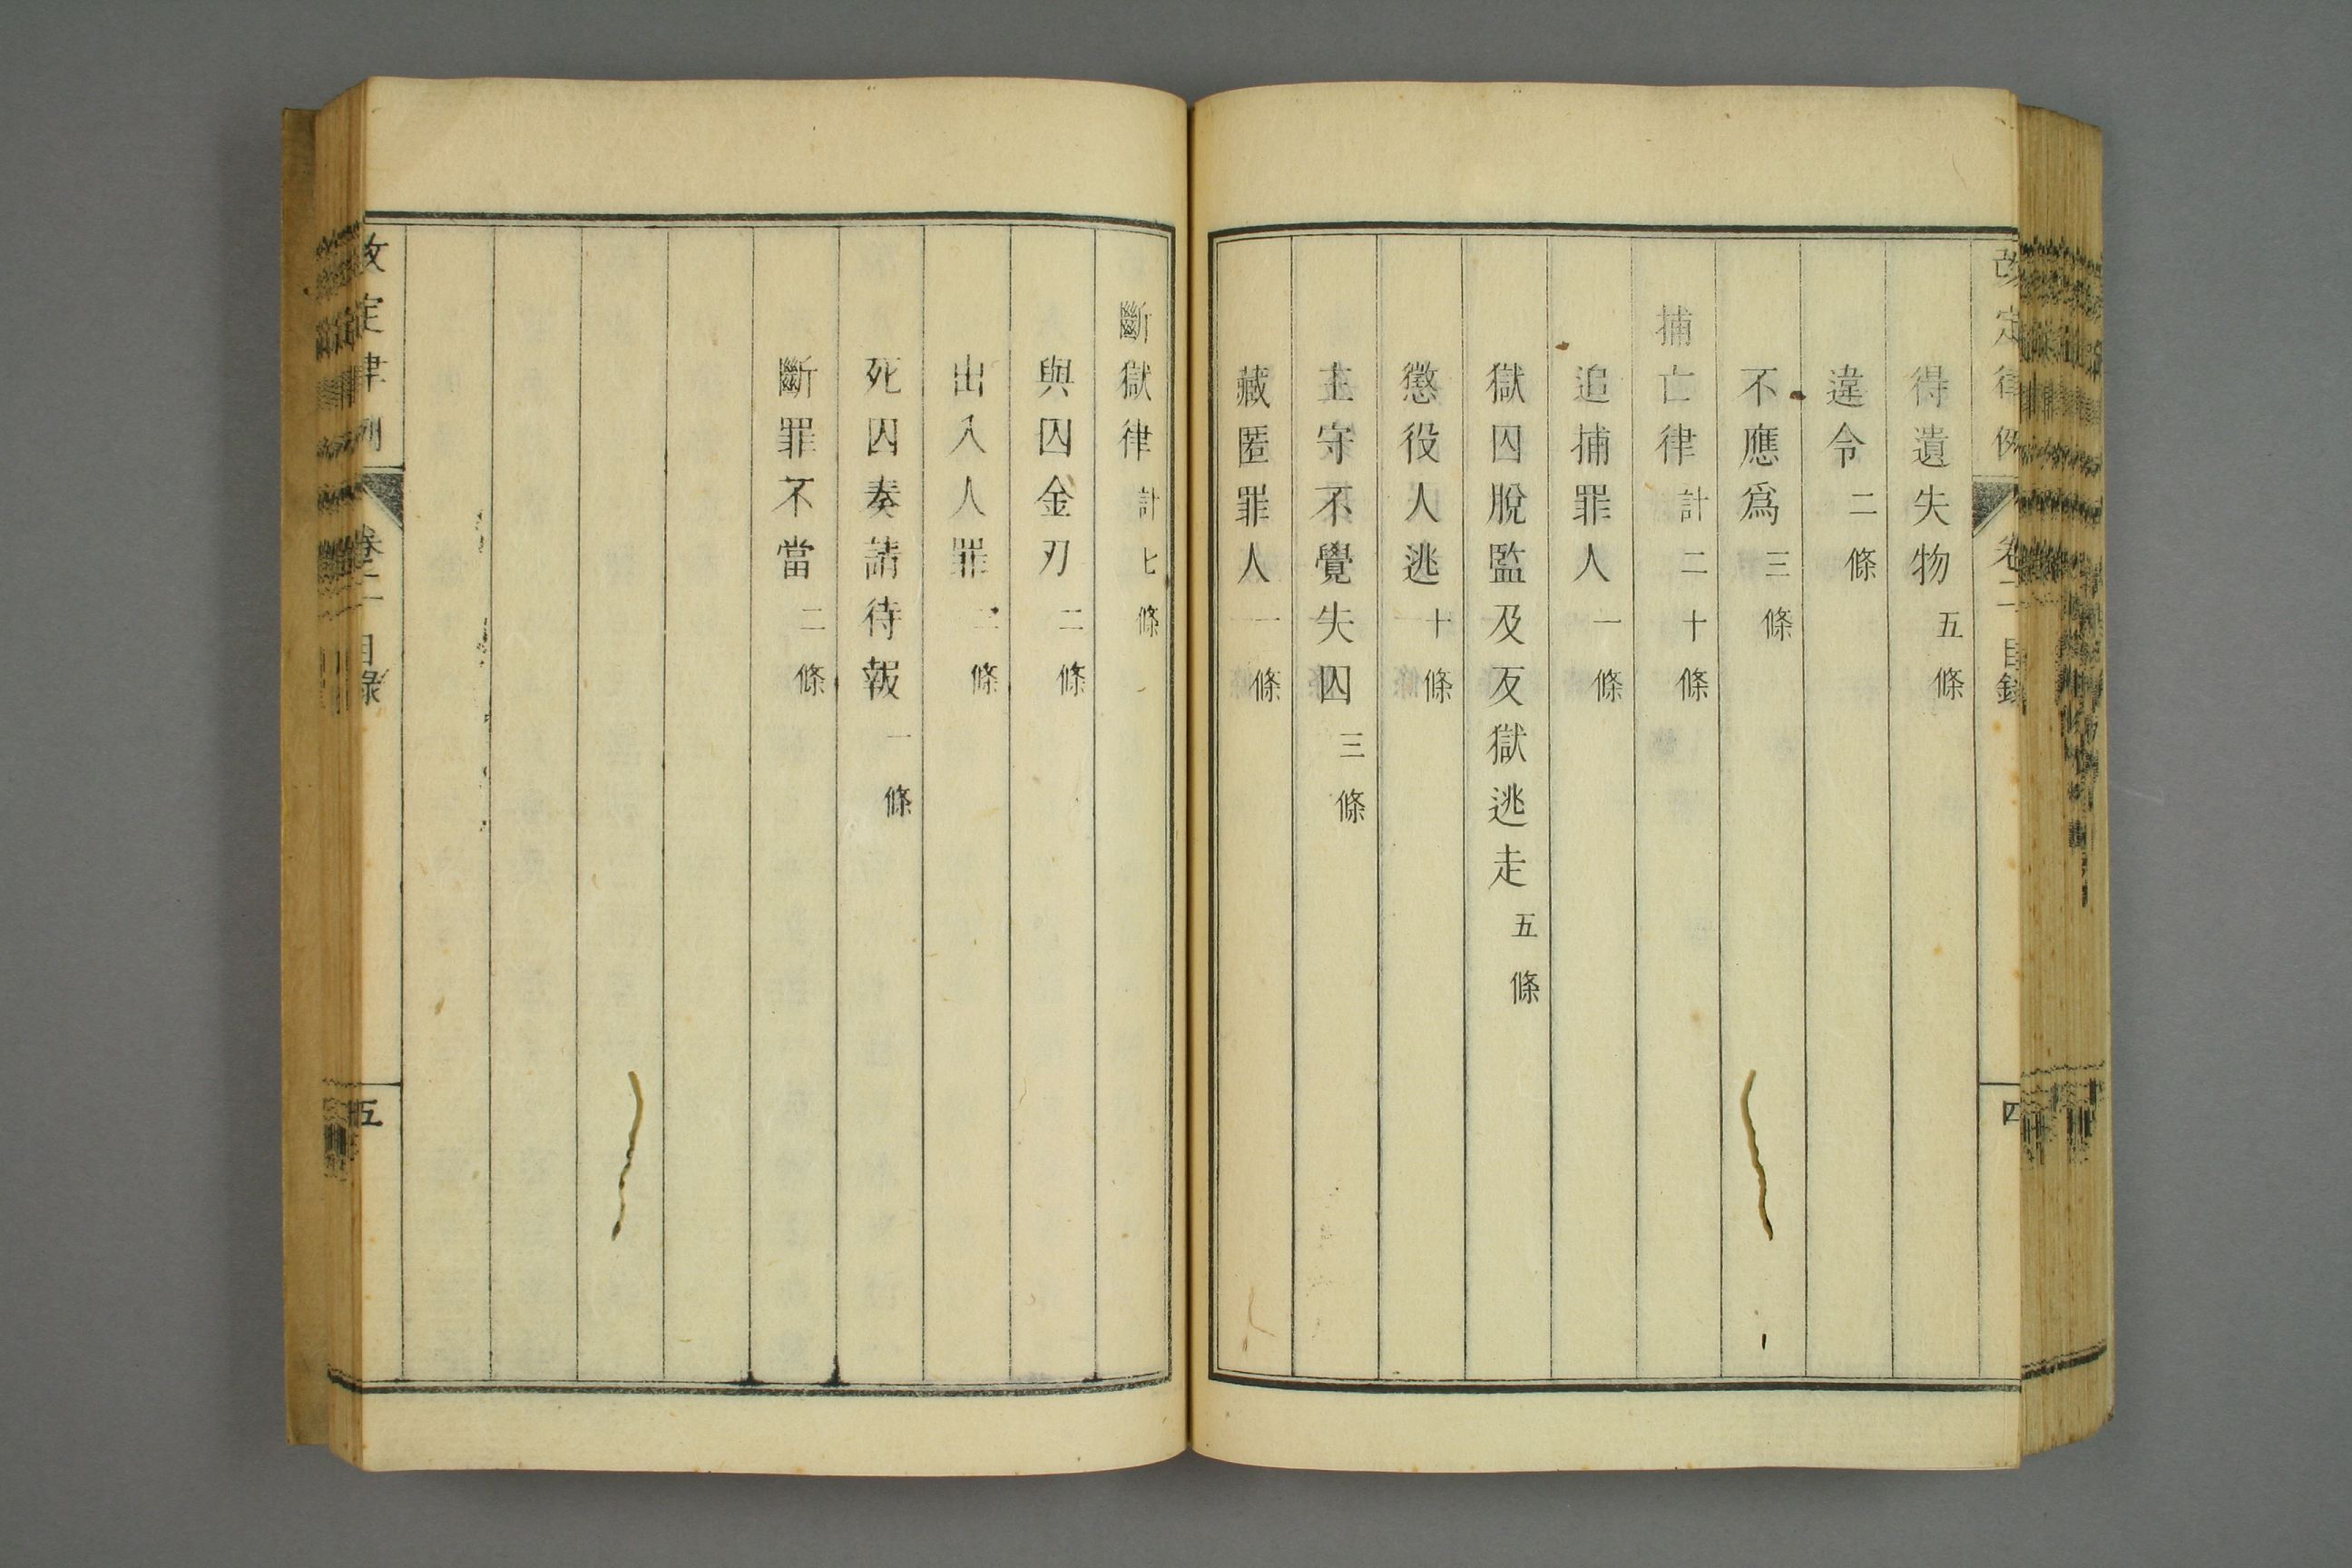 改定律例 卷二 目錄 四
得遺失物 五條
違令 二條
不應爲 三條
捕亡律 計二十條
追捕罪人 一條
獄囚脫監及反獄逃走 五條
懲役人逃 十條
主守不覺失囚 三條
藏匿罪人 一條
斷獄律 計七條
與囚金刃 二條
出入人罪 二條
死囚奏請待報 一條
斷罪不當 二條
改定律例 卷二 目錄 五